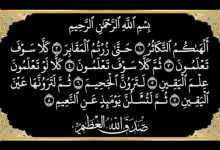 بِسْمِ اللَّهِ الرَّحْمَٰنِ الرَّحِيمِ
أَلْهَىٰكُمُ التَّكَاثُرُ ① حَتَّىٰ زُرْتُمُ الْمَقَابِرَ ② كَلَّا سَوْفَ
تَعْلَمُونَ ③ ثُمَّ كَلَّا سَوْفَ تَعْلَمُونَ ④ كَلَّا لَوْ تَعْلَمُونَ
عِلْمَ الْيَقِينِ ⑤ لَتَرَوُنَّ الْجَحِيمَ ⑥ ثُمَّ لَتَرَوُنَّهَا عَيْنَ
الْيَقِينِ ⑦ ثُمَّ لَتُسْأَلُنَّ يَوْمَئِذٍ عَنِ النَّعِيمِ ⑧
صَدَقَ اللَّهُ الْعَظِيمُ